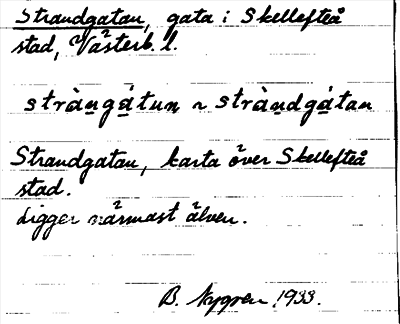 Strandgatan, gata i Skellefteå
stad, Västerb. l.
stràngátun ~ stràndgátan
Strandgatan, karta över Skellefteå
stad.
Ligger närmast älven.
B. Nygren 1933.